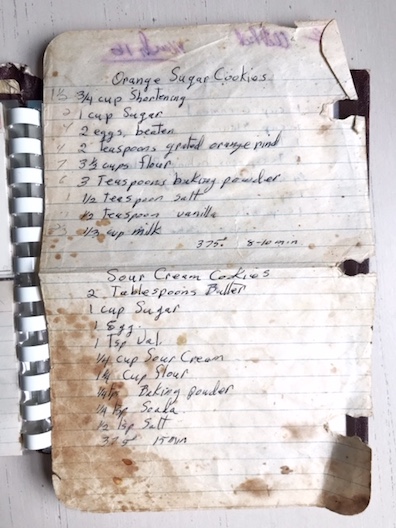 Orange Sugar Cookies
1½ 3/4 cup Shortening
2 1 cup Sugar
4 2 eggs, beaten
4 2 Teaspoons grated orange rind
7 3½ cups flour
6 3 Teaspoons baking powder
1 1/2 Teaspoon Salt
1/2 Teaspoon vanilla
2/3 1/3 cup milk
375° 8-10 min
Sour Cream Cookies
2 Tablespoons Butter
1 cup Sugar
1 Egg
1 Tsp Val.
1/4 cup Sour Cream
Cup Flour
Baking powder
1/4 tsp Soada
1/2 tsp Salt
375° 15 min